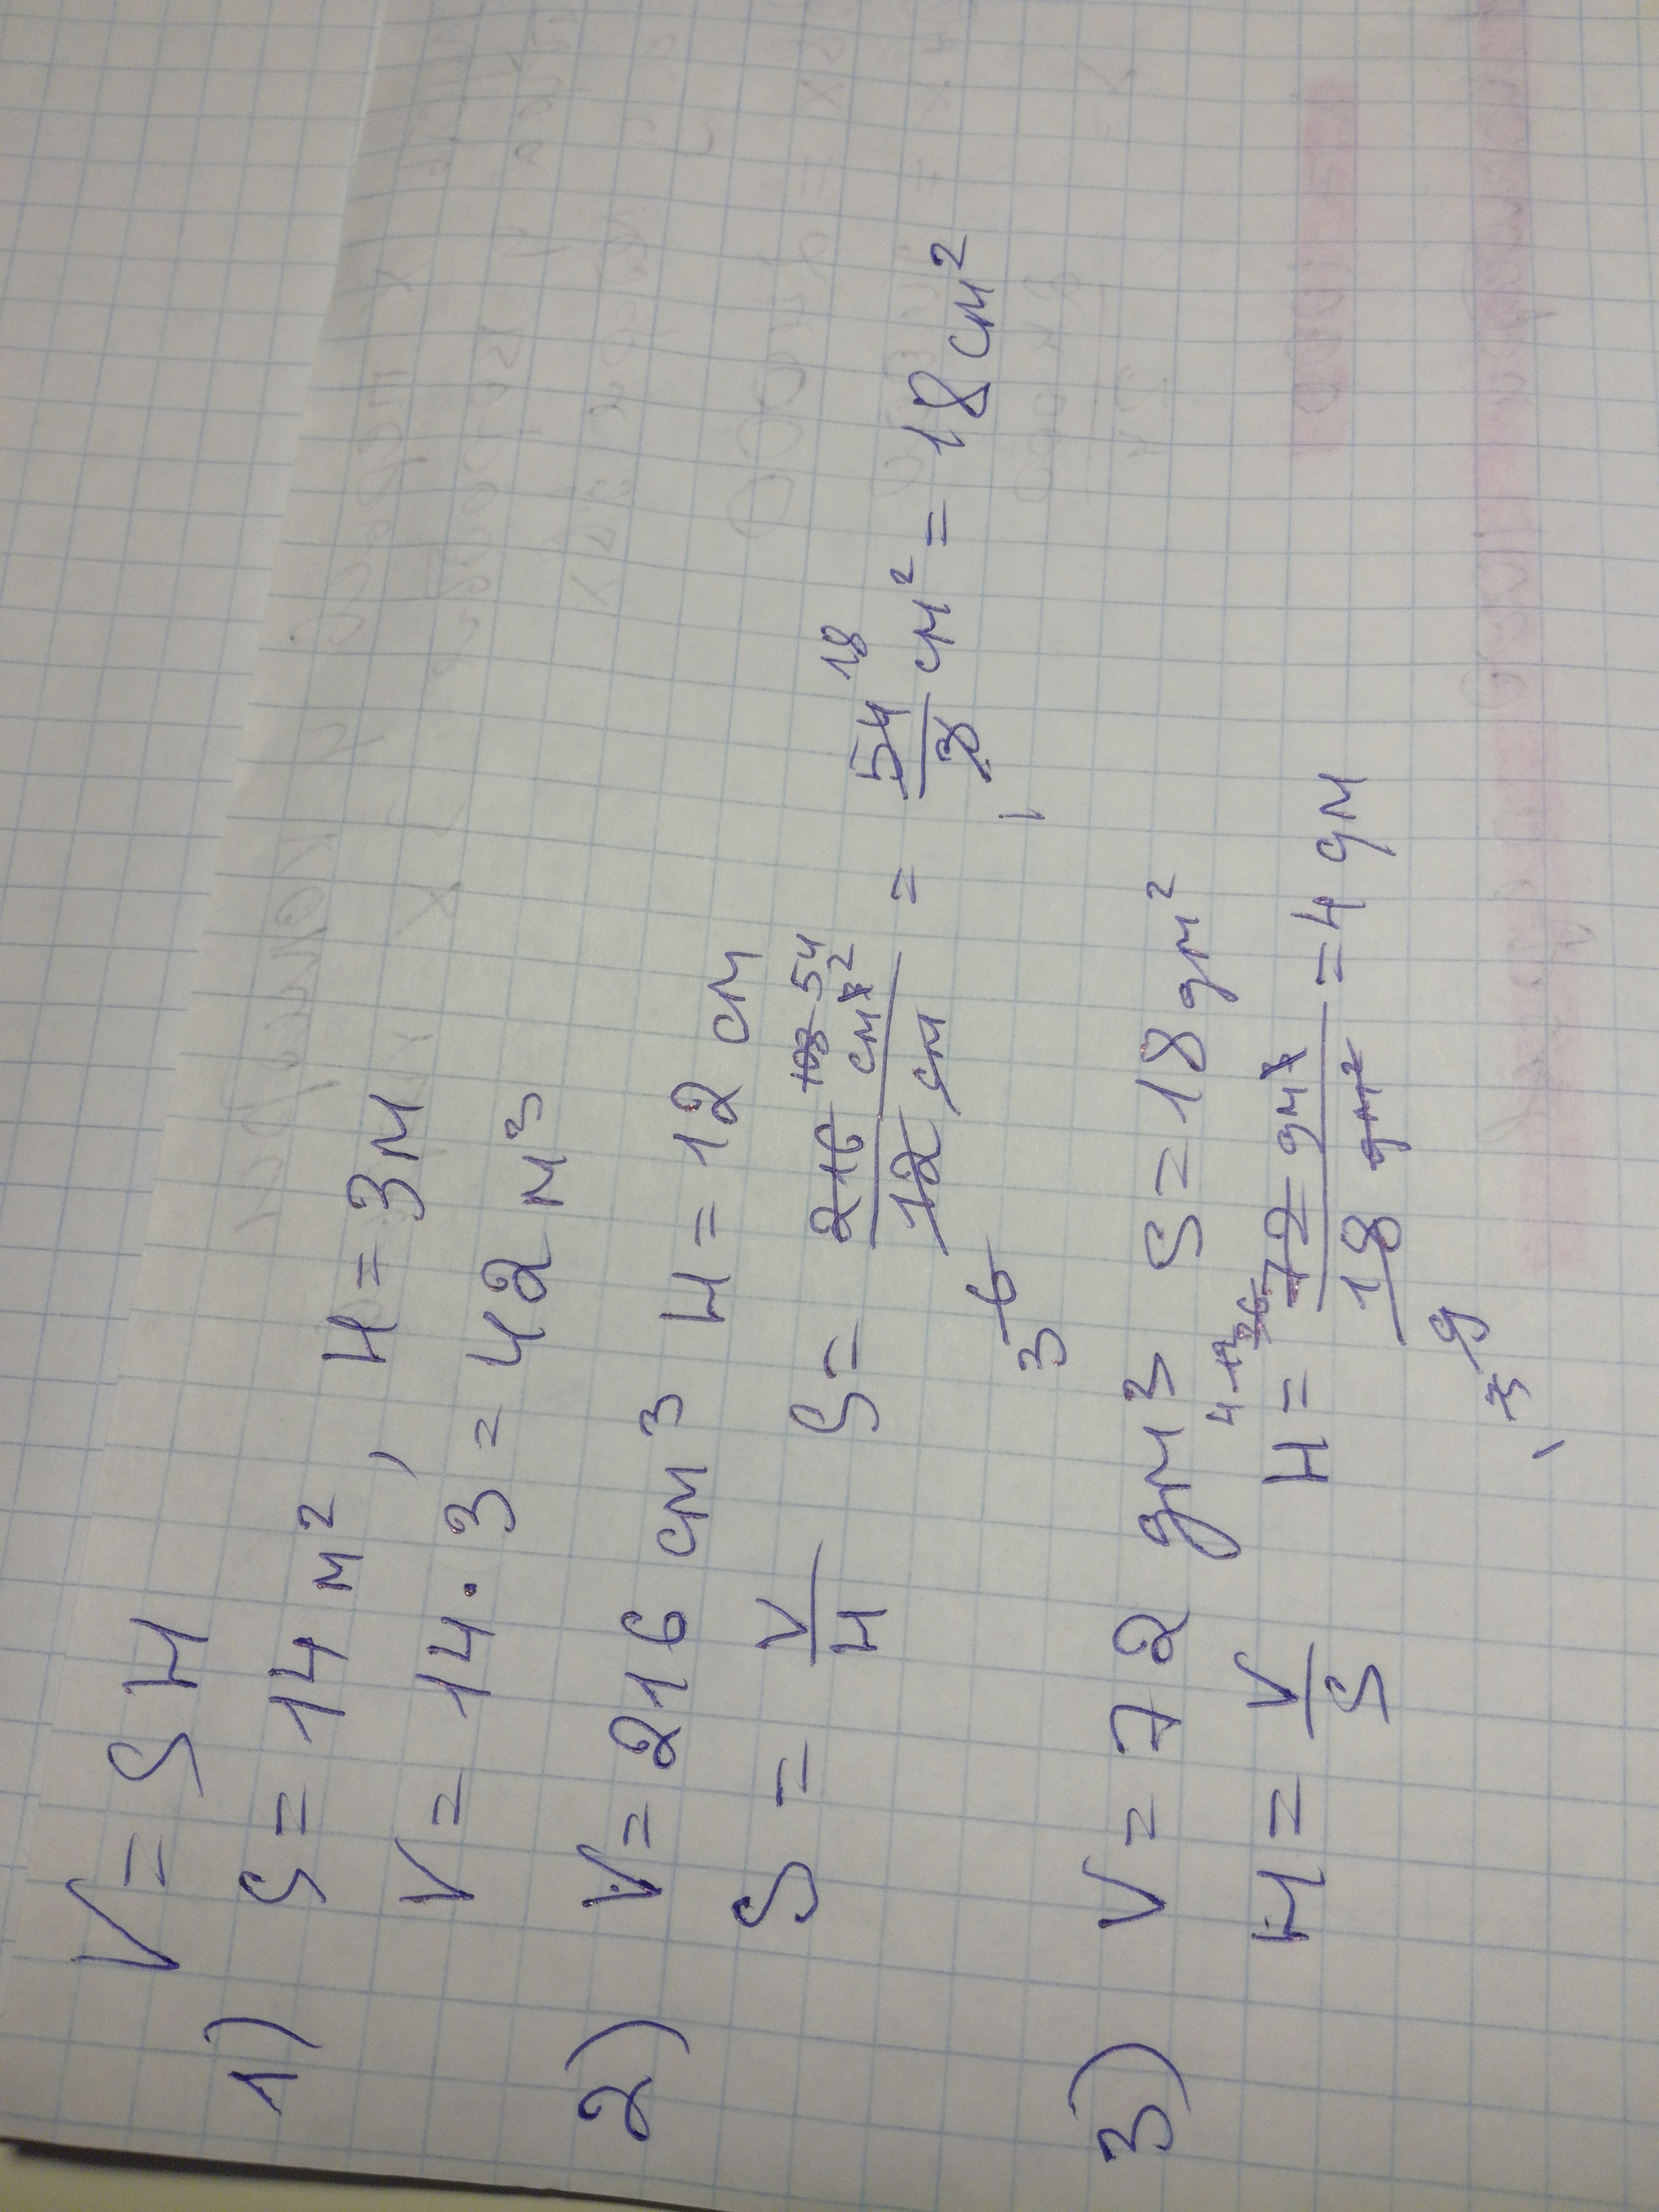 V = SH
1) S = 14 м², H = 3 м
V = 14 · 3 = 42 м³
2) V = 216 см³ H = 12 см
S = V/H S = 216 108 54 см³ ² / 12 см 6 3 = 54 18 / 3 1 см² = 18 см²
3) V = 72 дм³ S = 18 дм²
H = V/S H = 4 12 36 72 дм³ / 18 дм² 9 3 1 = 4 дм